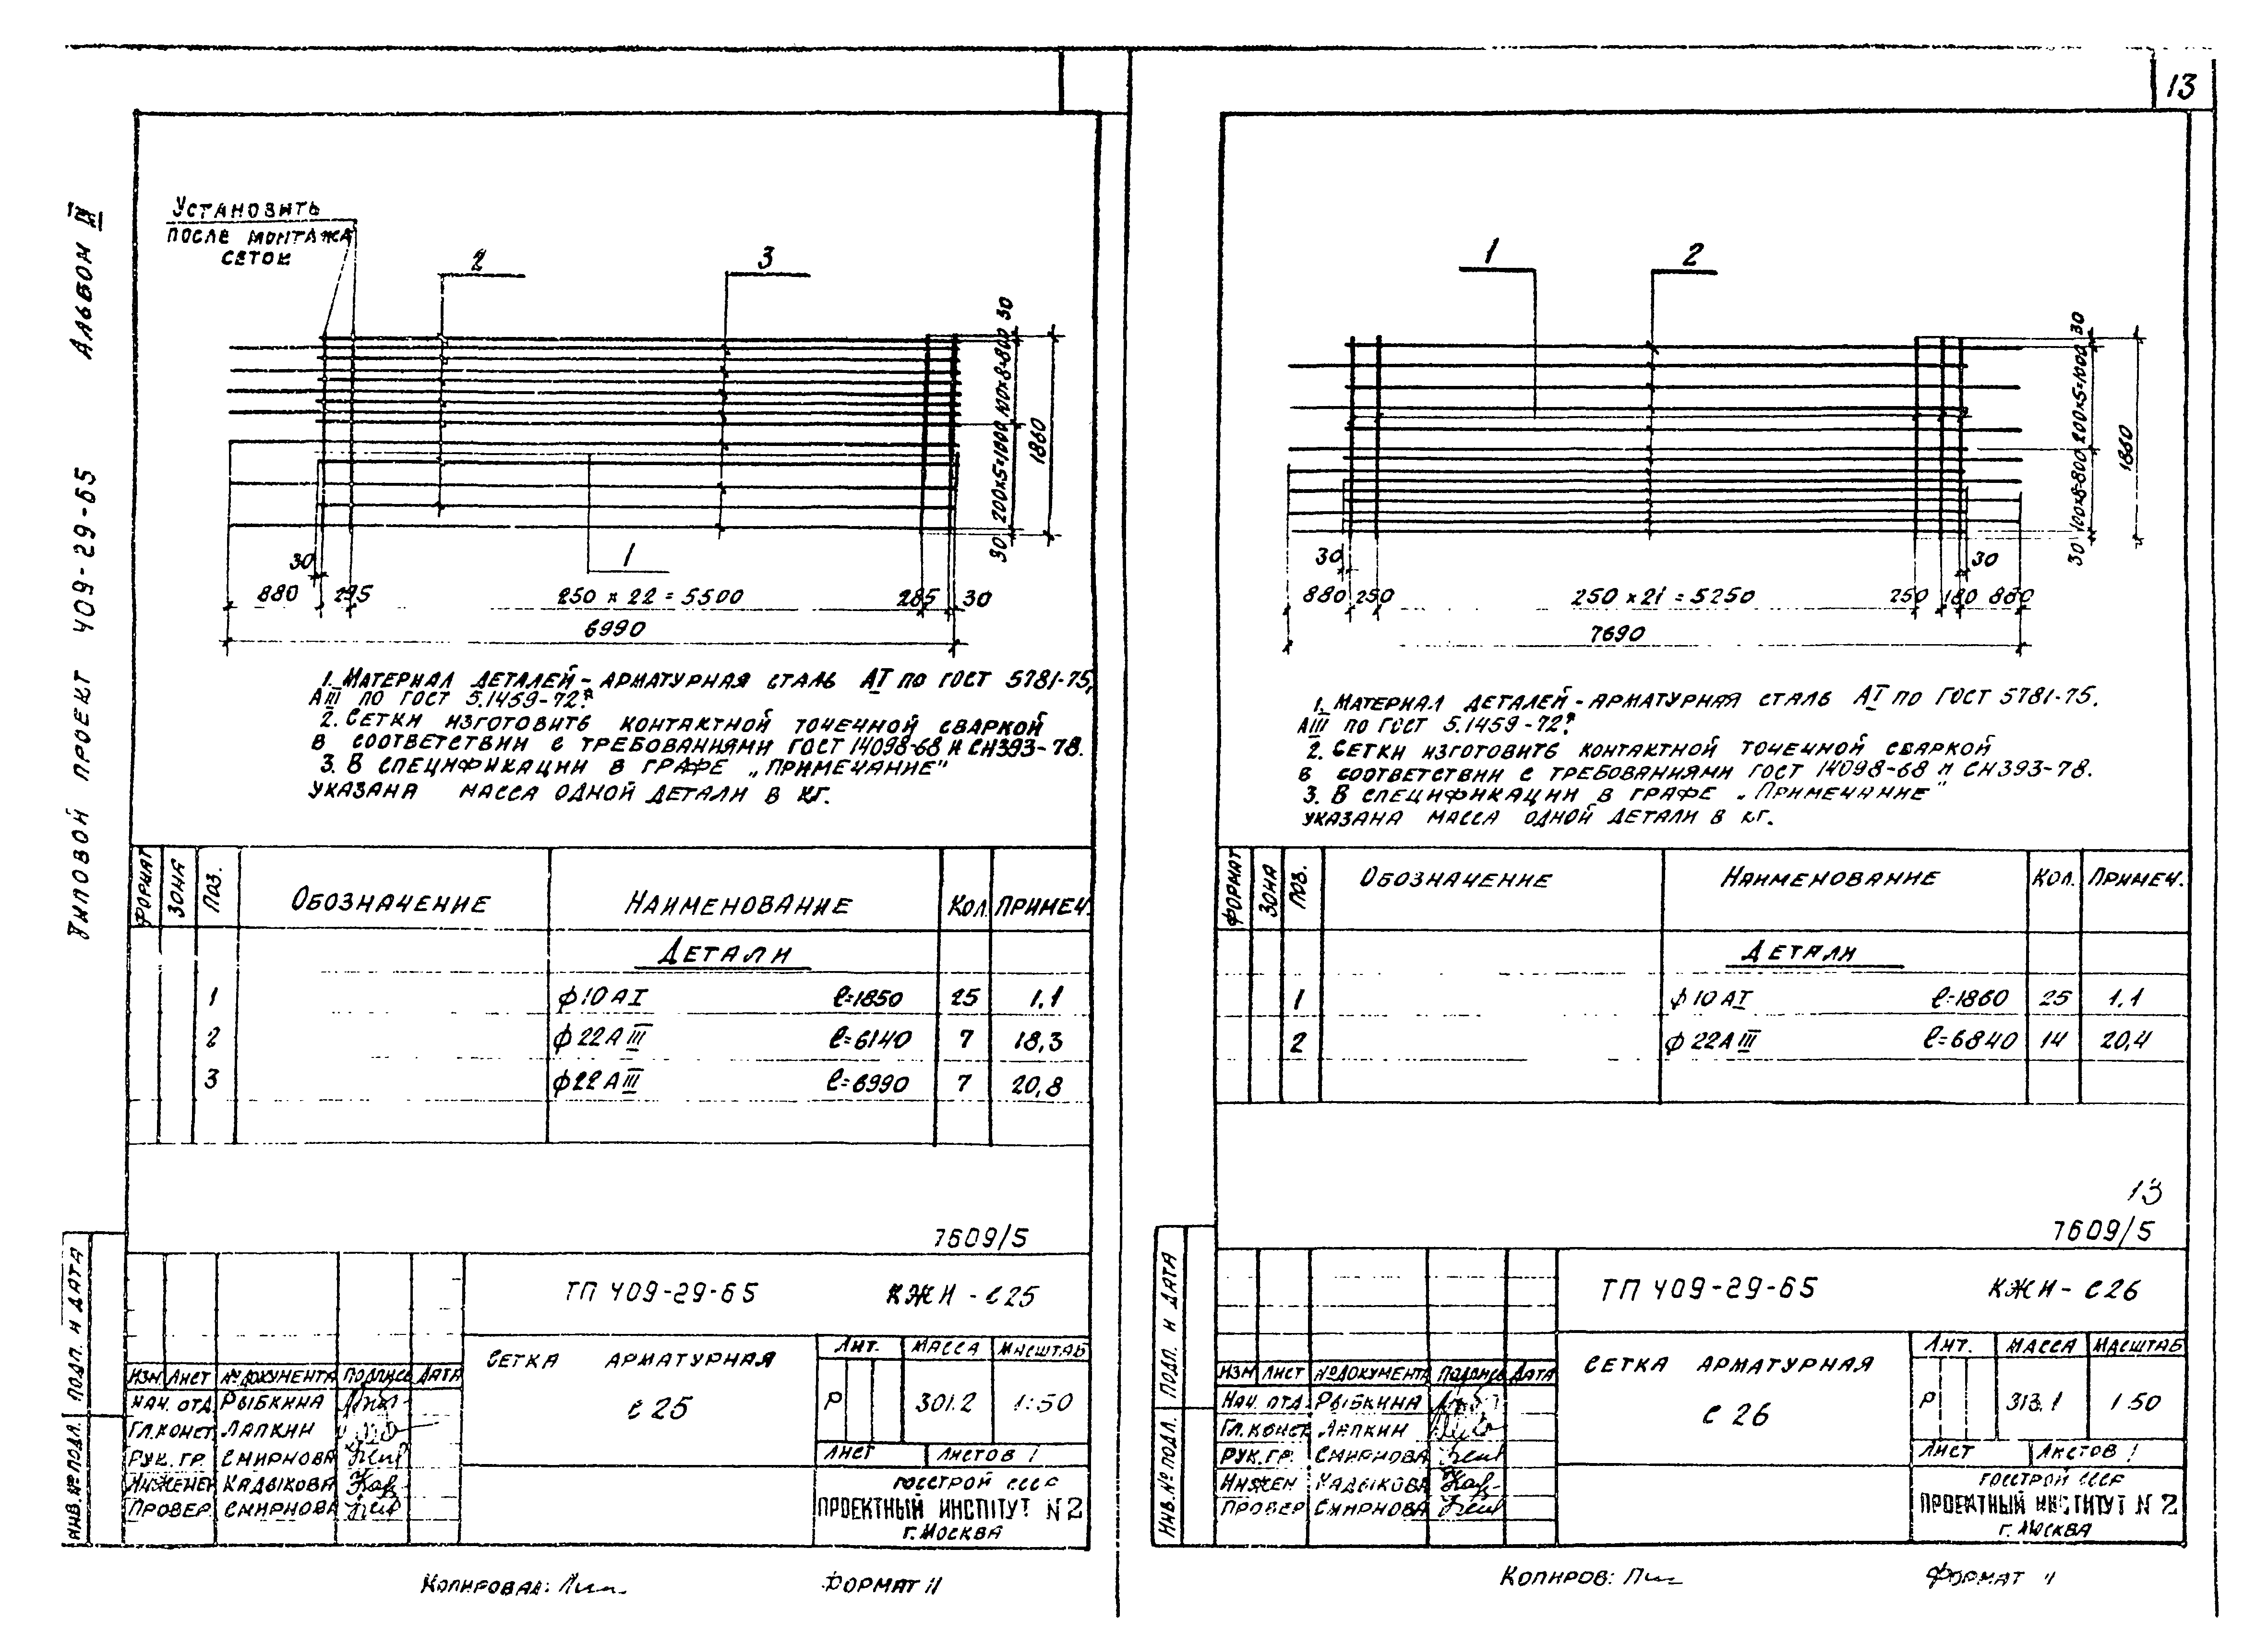 13
Альбом IV
Типовой проект 409-29-65
Установить
после монтажа
сеток
2
3
30
100х8=800
200х5=1000
30
1860
1
30
880
295
250 х 22 = 5500
285
30
6990
1. Материал деталей - арматурная сталь АI по ГОСТ 5781-75,
АIII по ГОСТ 5.1459-72*.
2. Сетки изготовить контактной точечной сваркой
в соответствии с требованиями ГОСТ 14098-68 и СН393-78.
3. В спецификации в графе „Примечание"
указана масса одной детали в кг.
Формат Зона Поз. Обозначение Наименование Кол. Примеч.
Детали
1 ф10АI ℓ=1850 25 1,1
2 ф22АIII ℓ=6140 7 18,3
3 ф22АIII ℓ=6990 7 20,8
7609/5
ТП 409-29-65 КЖИ-С25
Сетка арматурная
С25
Лит. Масса Масштаб
Р 301.2 1:50
Лист Листов 1
Изм Лист № документа Подпись Дата
Нач. отд. Рыбкина
Гл. конст Лапкин
Рук. гр. Смирнова
Инженер Кадыкова
Провер. Смирнова
Госстрой СССР
Проектный институт N2
г. Москва
Подп. и дата
Инв. № подл.
Копировал:
Формат 11
1
2
30
200х5=1000
100х8=800
30
1860
30
880
250
250 х 21 = 5250
250
180
30
7690
1. Материал деталей - арматурная сталь АI по ГОСТ 5781-75.
АIII по ГОСТ 5.1459-72*.
2. Сетки изготовить контактной точечной сваркой
в соответствии с требованиями ГОСТ 14098-68 и СН393-78.
3. В спецификации в графе „Примечание"
указана масса одной детали в кг.
Формат Зона Поз. Обозначение Наименование Кол. Примеч.
Детали
1 ф10АI ℓ=1860 25 1.1
2 ф22АIII ℓ=6840 14 20,4
13
7609/5
ТП 409-29-65 КЖИ-С26
Сетка арматурная
С26
Лит. Масса Масштаб
Р 313.1 1:50
Лист Листов 1
Изм Лист № документа Подпись Дата
Нач. отд. Рыбкина
Гл. конст Лапкин
Рук. гр. Смирнова
Инжен Кадыкова
Провер Смирнова
Госстрой СССР
Проектный институт N2
г. Москва
Подп. и дата
Инв. № подл.
Копиров:
Формат 11